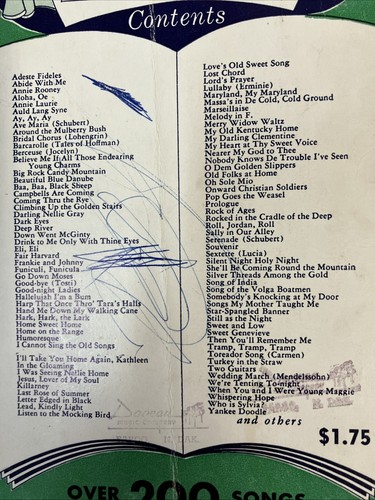 Contents
Adeste Fideles
Abide With Me
Annie Rooney
Aloha, Oe
Annie Laurie
Auld Lang Syne
Ay, Ay, Ay
Ave Maria (Schubert)
Around the Mulberry Bush
Bridal Chorus (Lohengrin)
Barcarolle (Tales of Hoffman)
Berceuse (Jocelyn)
Believe Me If All Those Endearing
Young Charms
Big Rock Candy Mountain
Beautiful Blue Danube
Baa, Baa, Black Sheep
Campbells Are Coming
Coming Thru the Rye
Climbing Up the Golden Stairs
Darling Nellie Gray
Dark Eyes
Deep River
Down Went McGinty
Drink to Me Only With Thine Eyes
Eli, Eli
Fair Harvard
Frankie and Johnny
Funiculi, Funicula
Go Down Moses
Good-bye (Tosti)
Good-night Ladies
Hallelujah I'm a Bum
Harp That Once Thro' Tara's Halls
Hand Me Down My Walking Cane
Hark, Hark, the Lark
Home Sweet Home
Home on the Range
Humoresque
I Cannot Sing the Old Songs
I'll Take You Home Again, Kathleen
In the Gloaming
I Was Seeing Nellie Home
Jesus, Lover of My Soul
Killarney
Last Rose of Summer
Letter Edged in Black
Lead, Kindly Light
Listen to the Mocking Bird
Love's Old Sweet Song
Lost Chord
Lord's Prayer
Lullaby (Erminie)
Maryland, My Maryland
Massa's in De Cold, Cold Ground
Marseillaise
Melody in F.
Merry Widow Waltz
My Old Kentucky Home
My Darling Clementine
My Heart at Thy Sweet Voice
Nearer My God to Thee
Nobody Knows De Trouble I've Seen
O Dem Golden Slippers
Old Folks at Home
Oh Sole Mio
Onward Christian Soldiers
Pop Goes the Weasel
Prologue
Rock of Ages
Rocked in the Cradle of the Deep
Roll, Jordan, Roll
Sally in Our Alley
Serenade (Schubert)
Souvenir
Sextette (Lucia)
Silent Night Holy Night
She'll Be Coming Round the Mountain
Silver Threads Among the Gold
Song of India
Song of the Volga Boatmen
Somebody's Knocking at My Door
Songs My Mother Taught Me
Star-Spangled Banner
Still as the Night
Sweet and Low
Sweet Genevieve
Then You'll Remember Me
Tramp, Tramp, Tramp
Toreador Song (Carmen)
Turkey in the Straw
Two Guitars
Wedding March (Mendelssohn)
We're Tenting To-night
When You and I Were Young Maggie
Whispering Hope
Who is Sylvia?
Yankee Doodle
and others
$1.75
OVER 200 SONGS